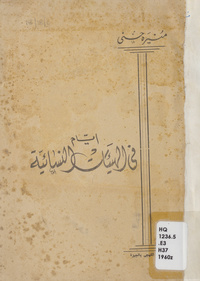 منيرة حسني
أيام
في الهيئات النسائية
HQ
1236.5
.E3
H37
1960z